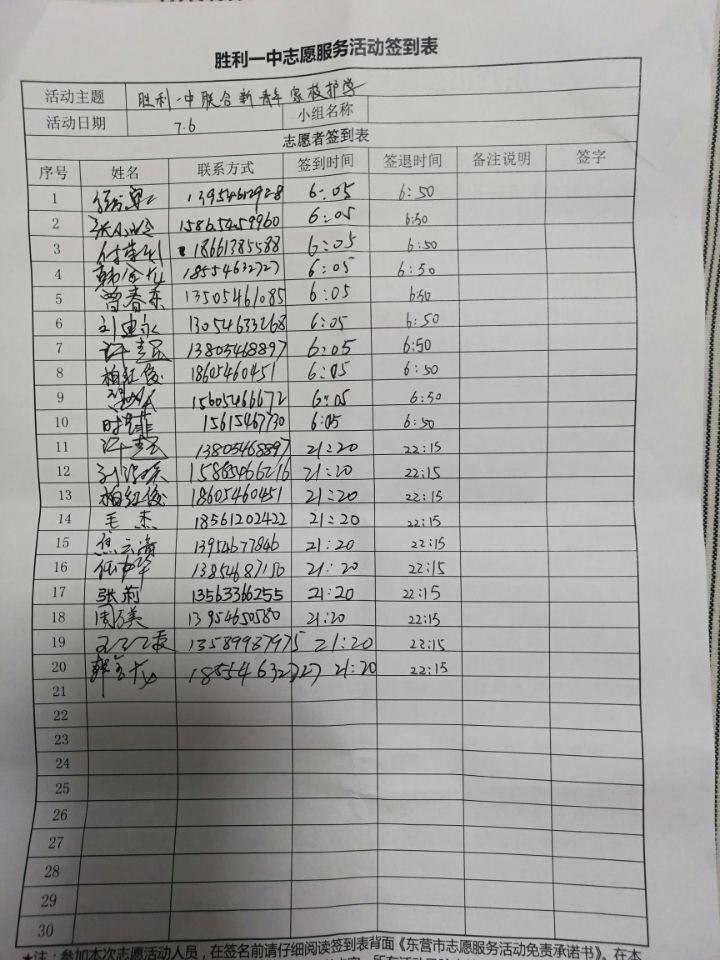 胜利一中志愿服务活动签到表
活动主题 胜利一中联合新青年家校护学
活动日期 7.6 小组名称
志愿者签到表
序号 姓名 联系方式 签到时间 签退时间 备注说明 签字
1 13954612928 6:05 6:50
2 15865459960 6:05 6:50
3 18661385588 6:05 6:50
4 18554632727 6:05 6:50
5 曾春东 13505461085 6:05 6:50
6 刘迎永 13054633268 6:05 6:50
7 13805468897 6:05 6:50
8 柏红俊 18605460451 6:05 6:50
9 15605466672 6:05 6:50
10 15615467730 6:05 6:50
11 13805468897 21:20 22:15
12 15865466216 21:20 22:15
13 柏红俊 18605460451 21:20 22:15
14 毛杰 18561202422 21:20 22:15
15 焦云海 13954677846 21:20 22:15
16 任中华 13854687150 21:20 22:15
17 张莉 13563366255 21:20 22:15
18 周万美 13954650580 21:20 22:15
19 13589987975 21:20 22:15
20 18554632727 21:20 22:15
21
22
23
24
25
26
27
28
29
30
*注：参加本次志愿活动人员，在签名前请仔细阅读签到表背面《东营市志愿服务活动免责承诺书》。在本